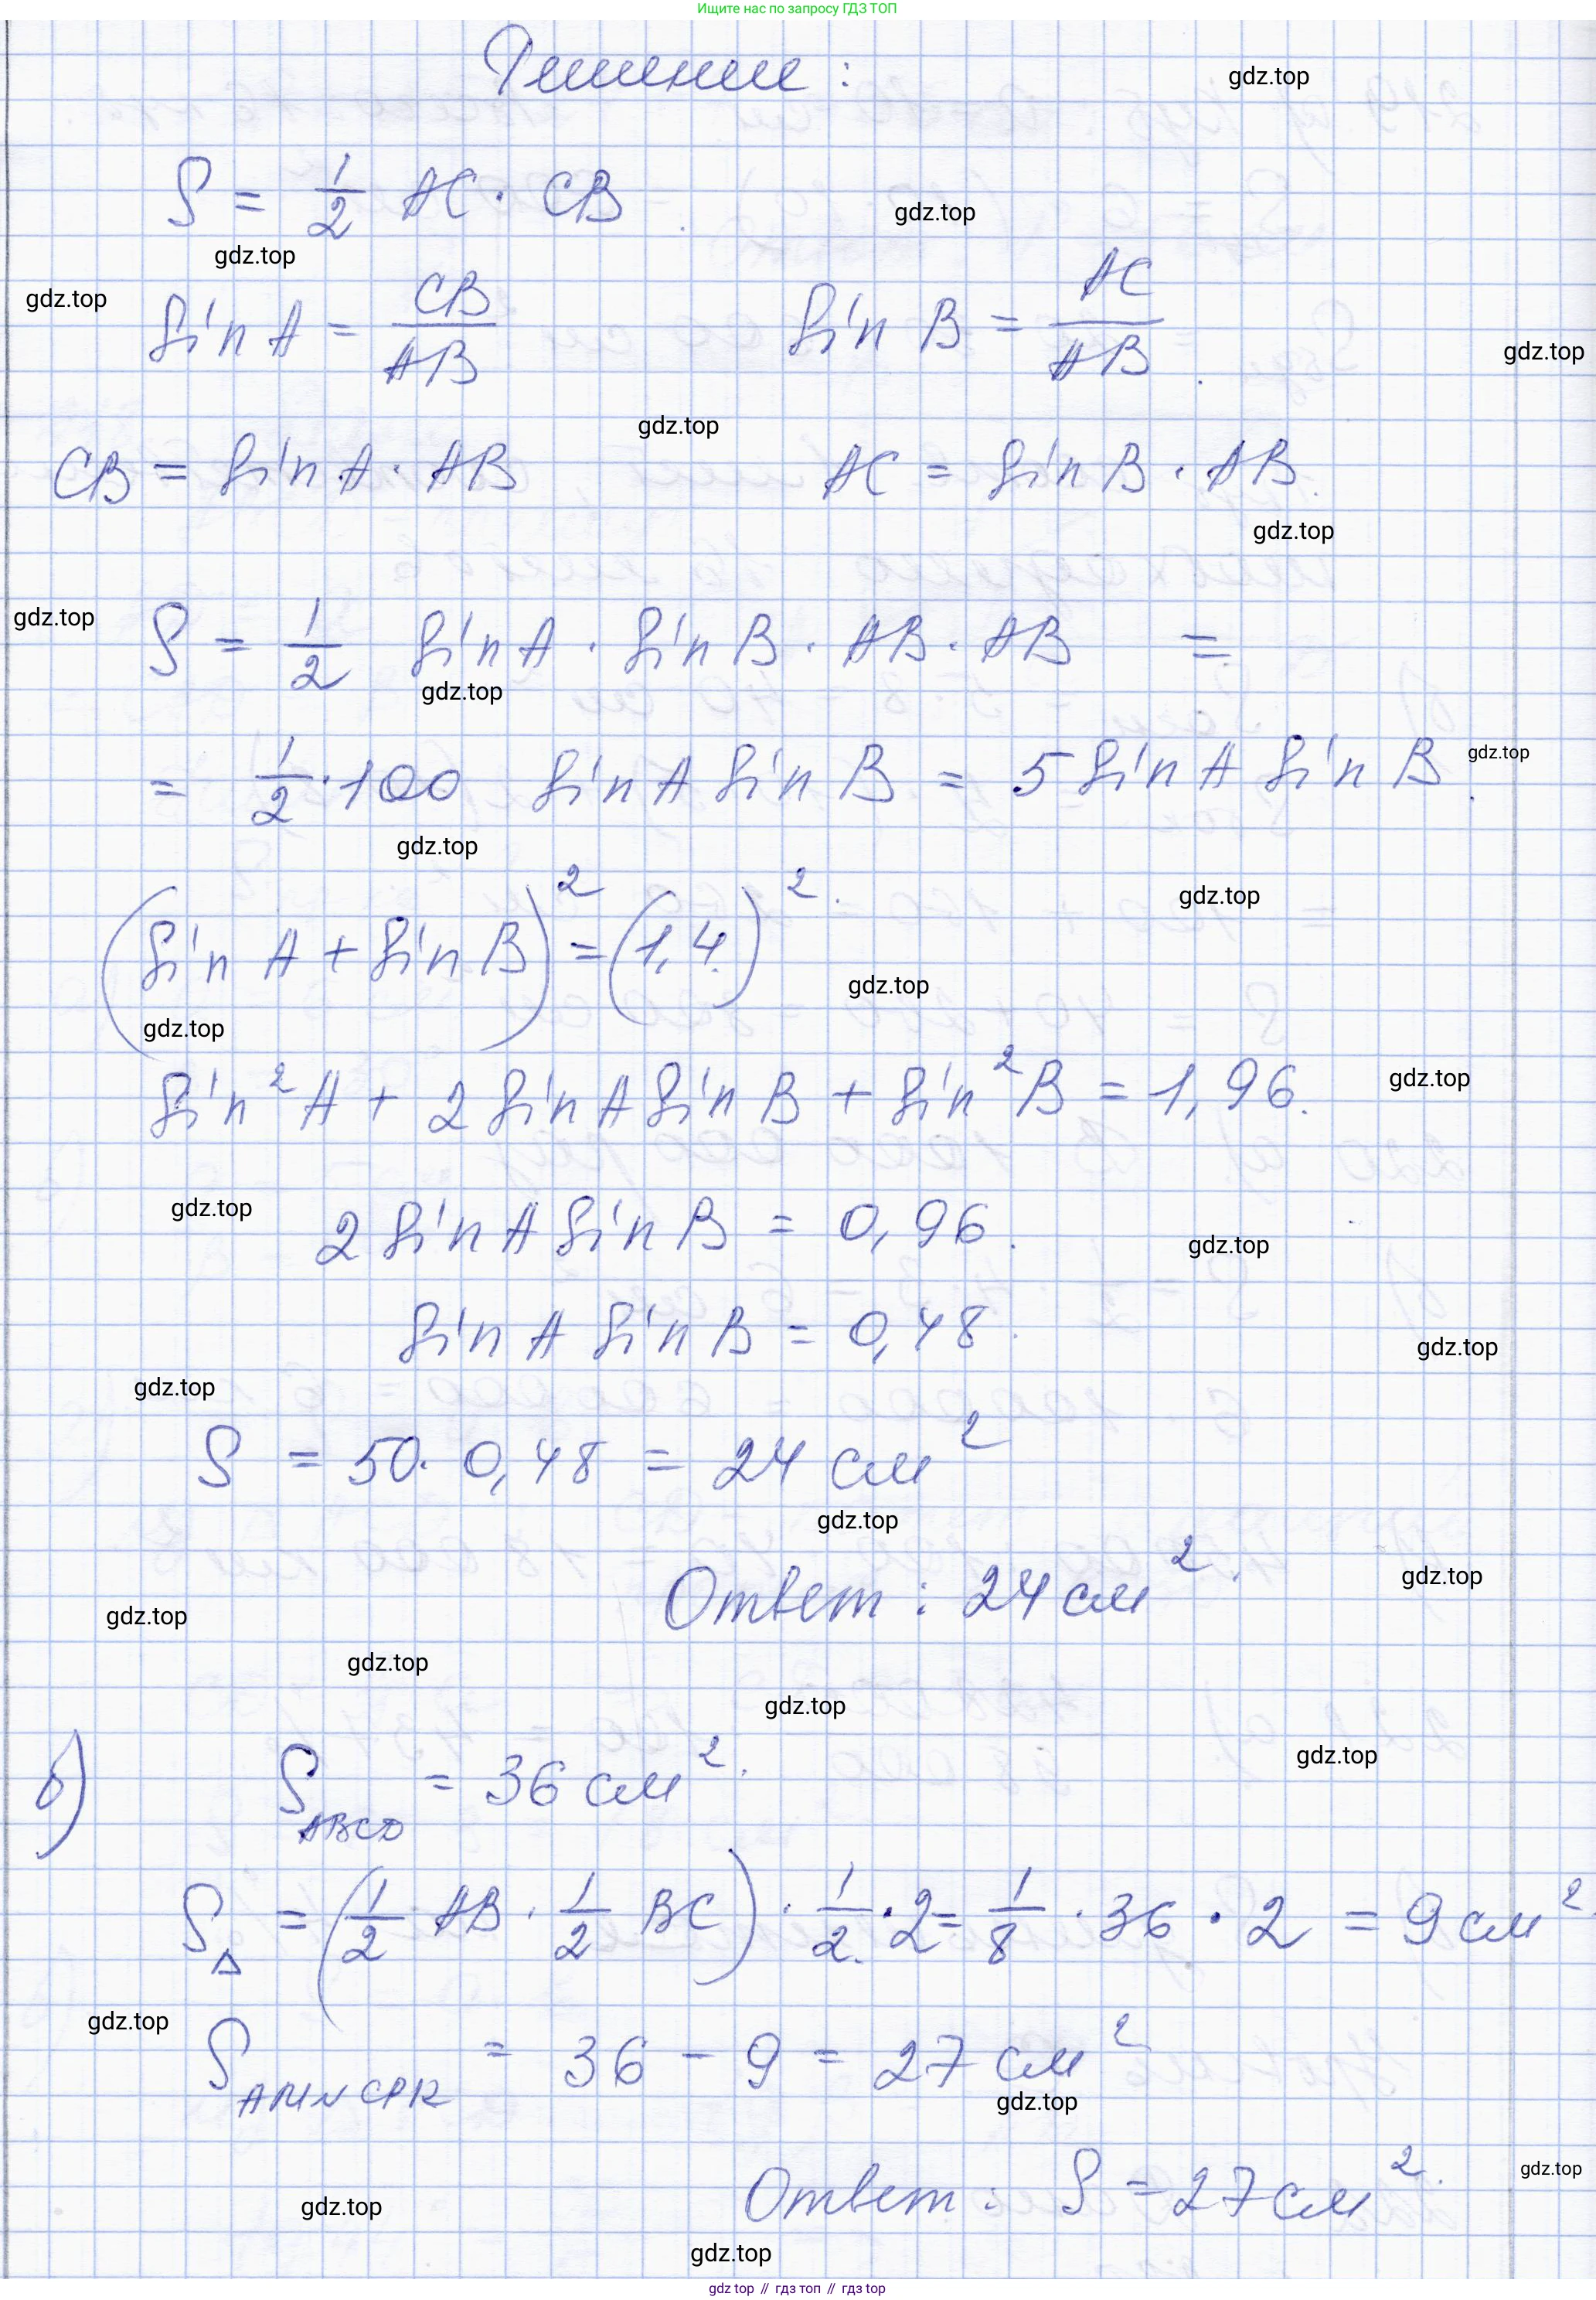 Ищите нас по запросу ГДЗ ТОП
Решение :
gdz.top
S = 1/2 AC · CB
gdz.top
gdz.top
gdz.top
sin A = CB/AB sin B = AC/AB
gdz.top
gdz.top
CB = sin A · AB AC = sin B · AB.
gdz.top
gdz.top
S = 1/2 sin A · sin B · AB · AB =
gdz.top
= 1/2 · 100 sin A sin B = 5 sin A sin B.
gdz.top
gdz.top
gdz.top
(sin A + sin B)² = (1,4)².
gdz.top
gdz.top
sin² A + 2 sin A sin B + sin² B = 1,96.
gdz.top
gdz.top
2 sin A sin B = 0,96.
gdz.top
sin A sin B = 0,48.
gdz.top
gdz.top
S = 50 · 0,48 = 24 см²
gdz.top
Ответ : 24 см².
gdz.top
gdz.top
gdz.top
gdz.top
б) S ABCD = 36 см².
gdz.top
S△ = (1/2 AB · 1/2 BC) · 1/2 · 2 = 1/8 · 36 · 2 = 9 см²
gdz.top
S AMNCPK = 36 - 9 = 27 см²
gdz.top
Ответ : S = 27 см².
gdz.top
gdz.top
gdz.top
gdz top // гдз топ // гдз top